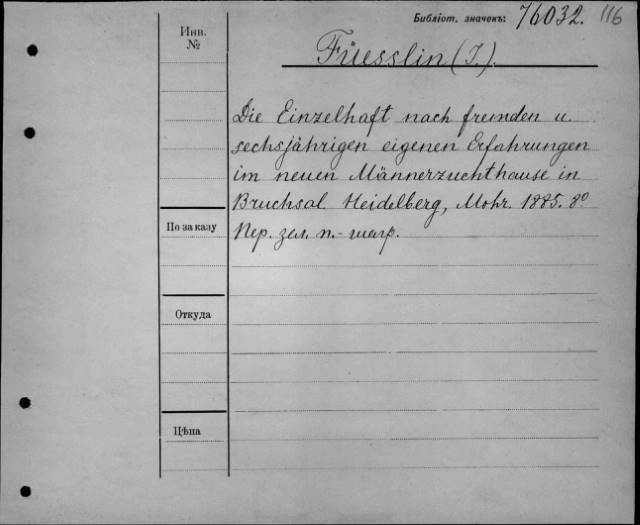 Библіот. значекъ: 76032. 116
Инв.
№
Füesslin (J.).
Die Einzelhaft nach fremden u.
sechsjährigen eigenen Erfahrungen
im neuen Männerzuchthause in
Bruchsal. Heidelberg, Mohr. 1885. 8º
По заказу
Пер. зел. п.-шагр.
Откуда
Цѣна